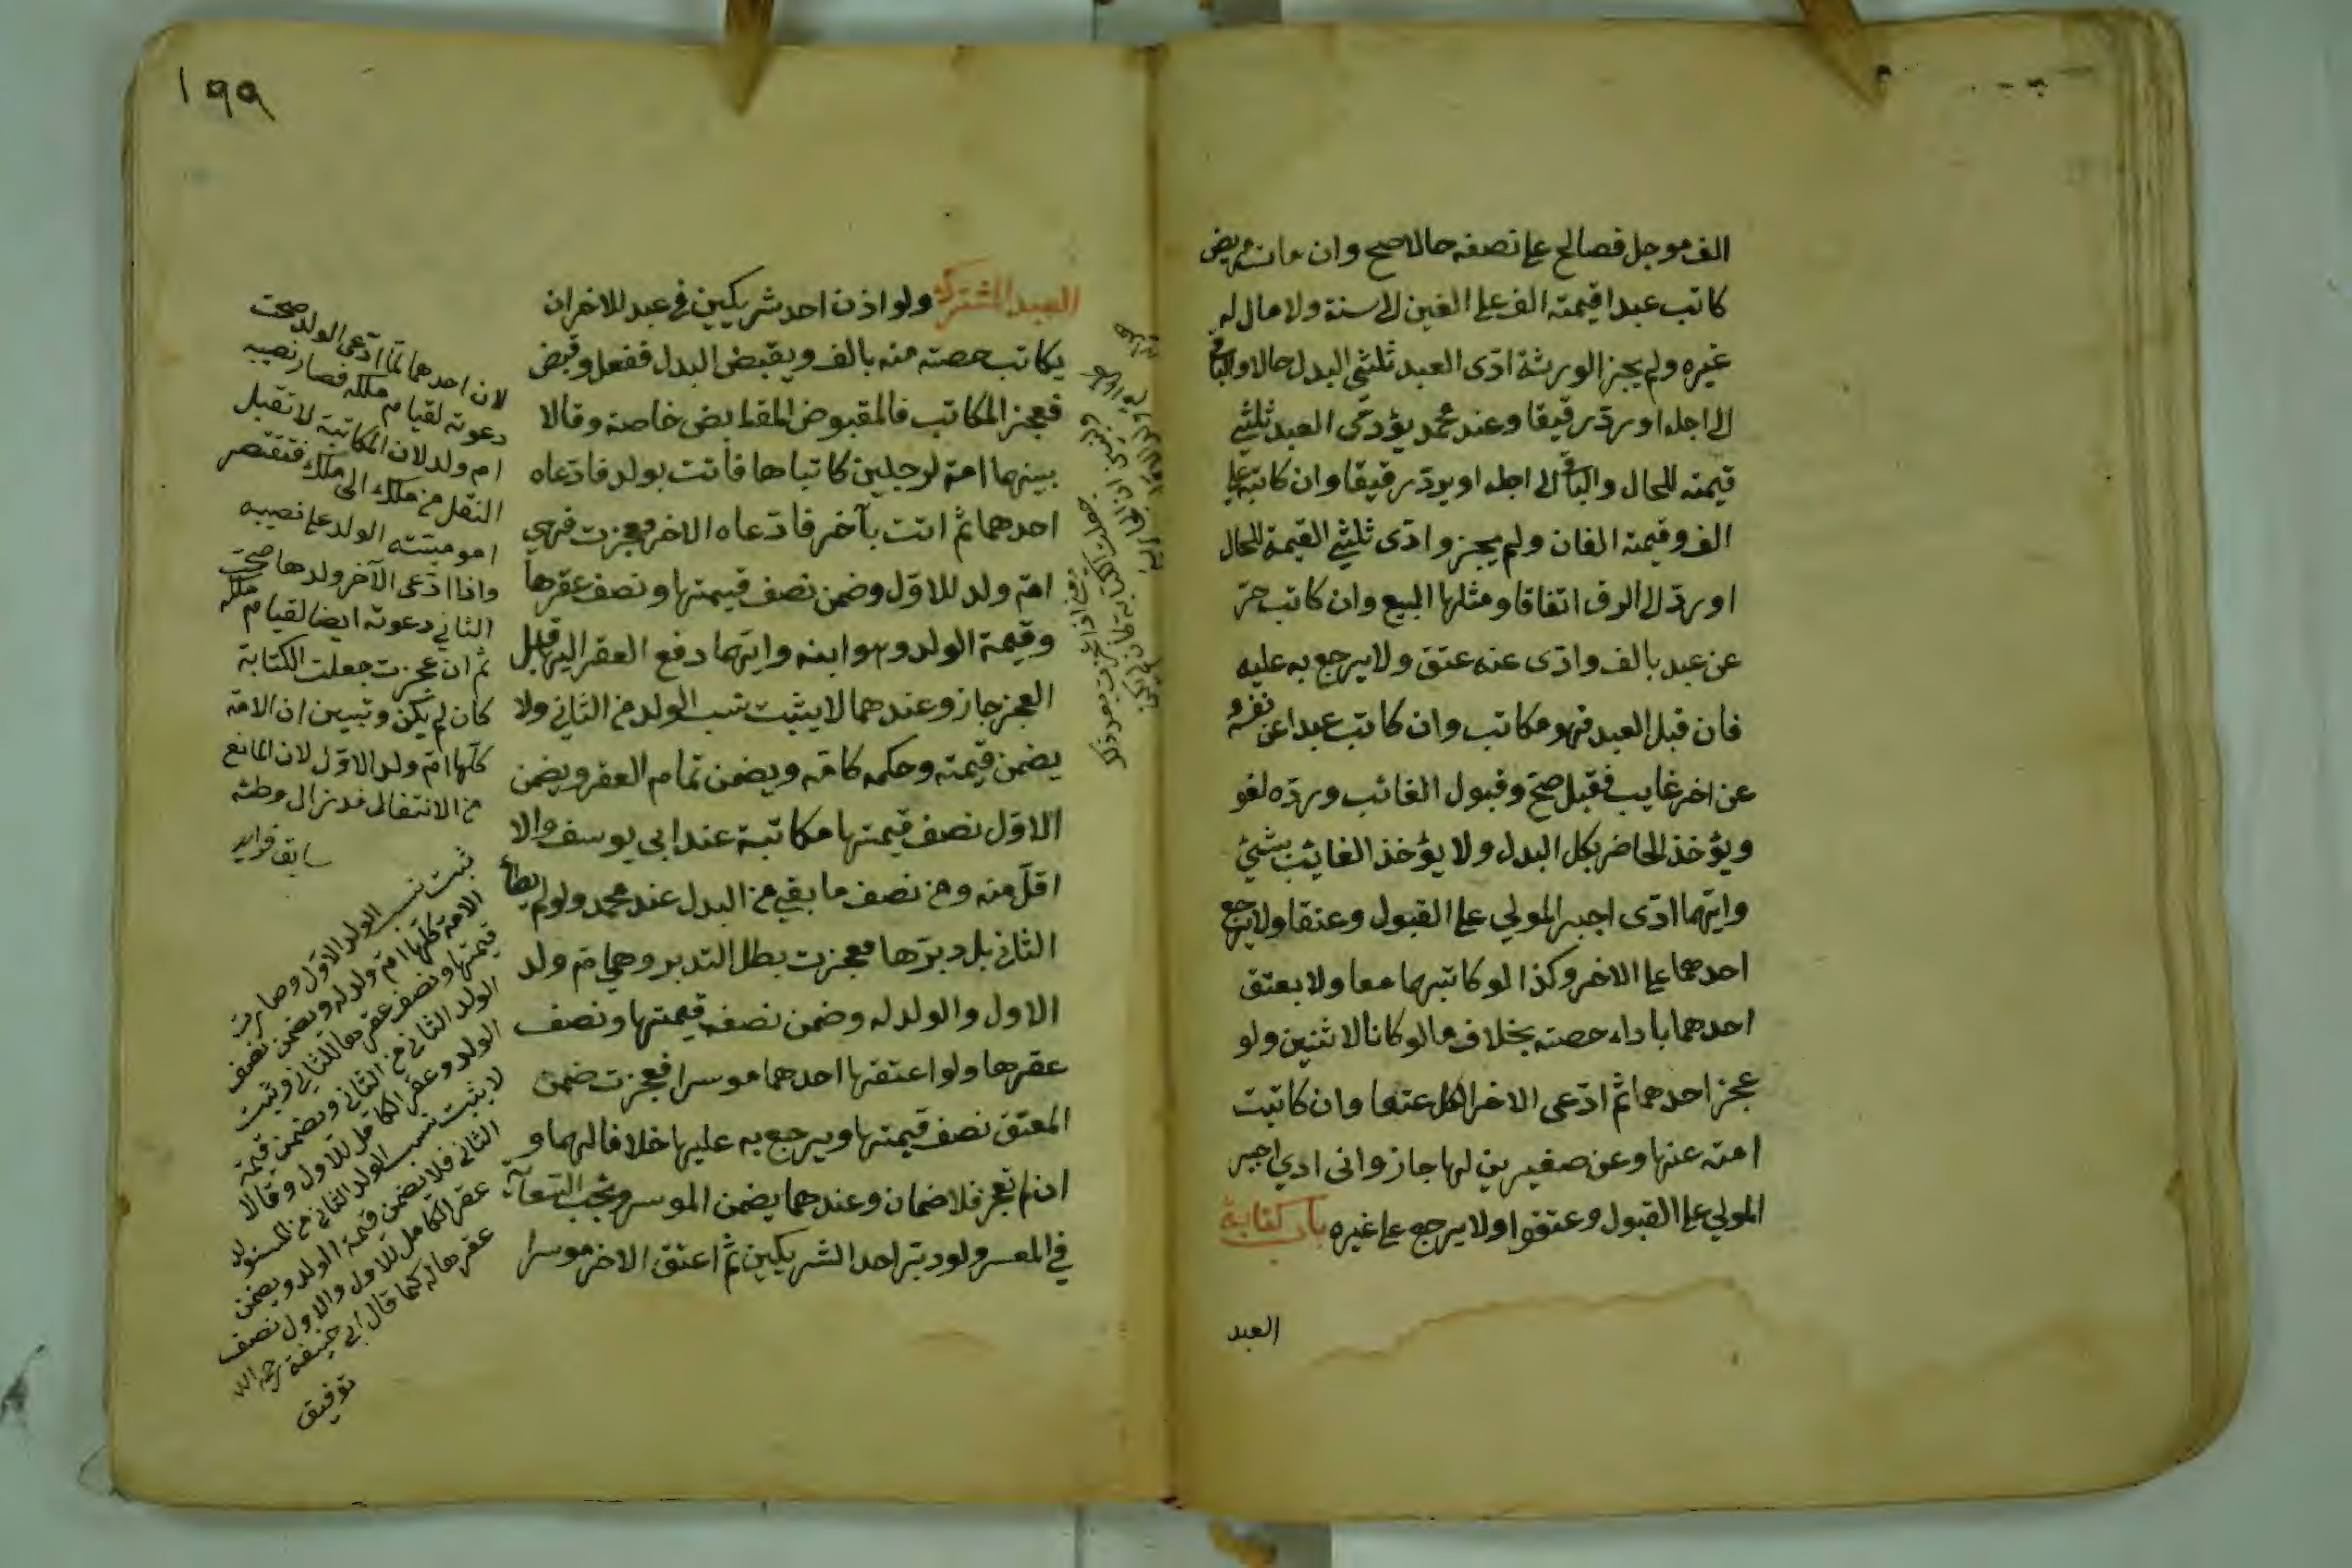 الف موجل فصالح على نصفه حالا صح وان مات مريض
كاتب عبدا قيمته الف على الفين الى سنة ولا مال له
غيره ولم يجز الورثة ادّى العبد ثلثي البدل حالا والباقي
الى اجله او ردّ رقيقا وعند محمد يؤدّى العبد ثلثي
قيمته للحال والباقي الى اجله او يردّ رقيقا وان كاتبه على
الف وقيمته الفان ولم يجز وادّى ثلثي القيمة للحال
او ردّ الى الرق اتفاقا ومثلها البيع وان كاتب حرّ
عن عبد بالف وادّى عنه عتق ولا يرجع به عليه
فان قبل العبد فهو مكاتب وان كاتب عبدا عن نفسه و
عن اخر غايب فقبل صحّ وقبول الغائب وردّه لغو
ويؤخذ الحاضر بكل البدل ولا يؤخذ الغائب بشئ
وايّهما ادّى اجبر المولي على القبول وعتقا ولا يرجع
احدهما على الاخر وكذا لو كاتبهما معا ولا يعتق
احدهما باداء حصته بخلاف ما لو كانا لاثنين ولو
عجز احدهما ثم ادّعى الاخر الكل عتقا وان كاتبت
امته عنها وعن صغيرين لها جاز واى ادي اجبر
المولي على القبول وعتقوا ولا يرجع على غيره باب كتابة
العبد
١٩٩
العبد المشترك ولو اذن احد شريكين في عبد للاخر ان
يكاتب حصته منه بالف ويقبض البدل ففعل وقبض
فعجز المكاتب فالمقبوض للقابض خاصة وقالا
بينهما امة لرجلين كاتباها فأتت بولد فادّعاه
احدهما ثم اتت بآخر فادّعاه الاخر فعجزت فهي
امّ ولد للاوّل وضمن نصف قيمتها ونصف عقرها
وقيمة الولد وهو ابنه وايّهما دفع العقر اليها قبل
العجز جاز وعندهما لا يثبت نسب الولد من الثاني ولا
يضمن قيمته وحكمه كامّه ويضمن تمام العقر ويضمن
الاوّل نصف قيمتها مكاتبة عند ابي يوسف والا
اقلّ منه ومن نصف ما بقي من البدل عند محمد ولو لم يطأ
الثاني بل دبرّها فعجزت بطل التدبير وهي امّ ولد
الاول والولد له وضمن نصفه قيمتها ونصف
عقرها ولو اعتقها احدهما موسرا فعجزت ضمن
المعتق نصف قيمتها ويرجع به عليها خلافا لهما و
ان لم تعجز فلا ضمان وعندهما يضمن الموسر وتجب السعاية
في المعسر ولو دبّر احد الشريكين ثم اعتق الاخر موسرا
لان احدهما لمّا ادّعى الولد صحت
دعوته لقيام ملكه فصار نصيبه
ام ولد لان المكاتبة لا تقبل
النقل من ملك الى ملك فتقتصر
امومية الولد على نصيبه
واذا ادّعى الآخر ولدها صحّت
الثاني دعوته ايضا لقيام ملكه
ثم ان عجزت جعلت الكتابة
كأن لم يكن وتبين ان الامة
كلّها امّ ولد الاوّل لان المانع
من الانتقال قد زال وطئه
سابق فرايد
ثبت نسب الولد الاوّل وصارت
الامة كلّها امّ ولد له ويضمن نصف
قيمتها ونصف عقرها للثاني وثبت
الولد الثاني من الثاني ويضمن قيمة
الولد وعقر الكامل للاول وقالا
لا يثبت نسب الولد الثاني من المستولد
الثاني فلا يضمن قيمة الولد ويضمن
عقر الكامل للاول والاول نصف
عقرها له كما قال ابي حنيفة رحمه الله
توفيق